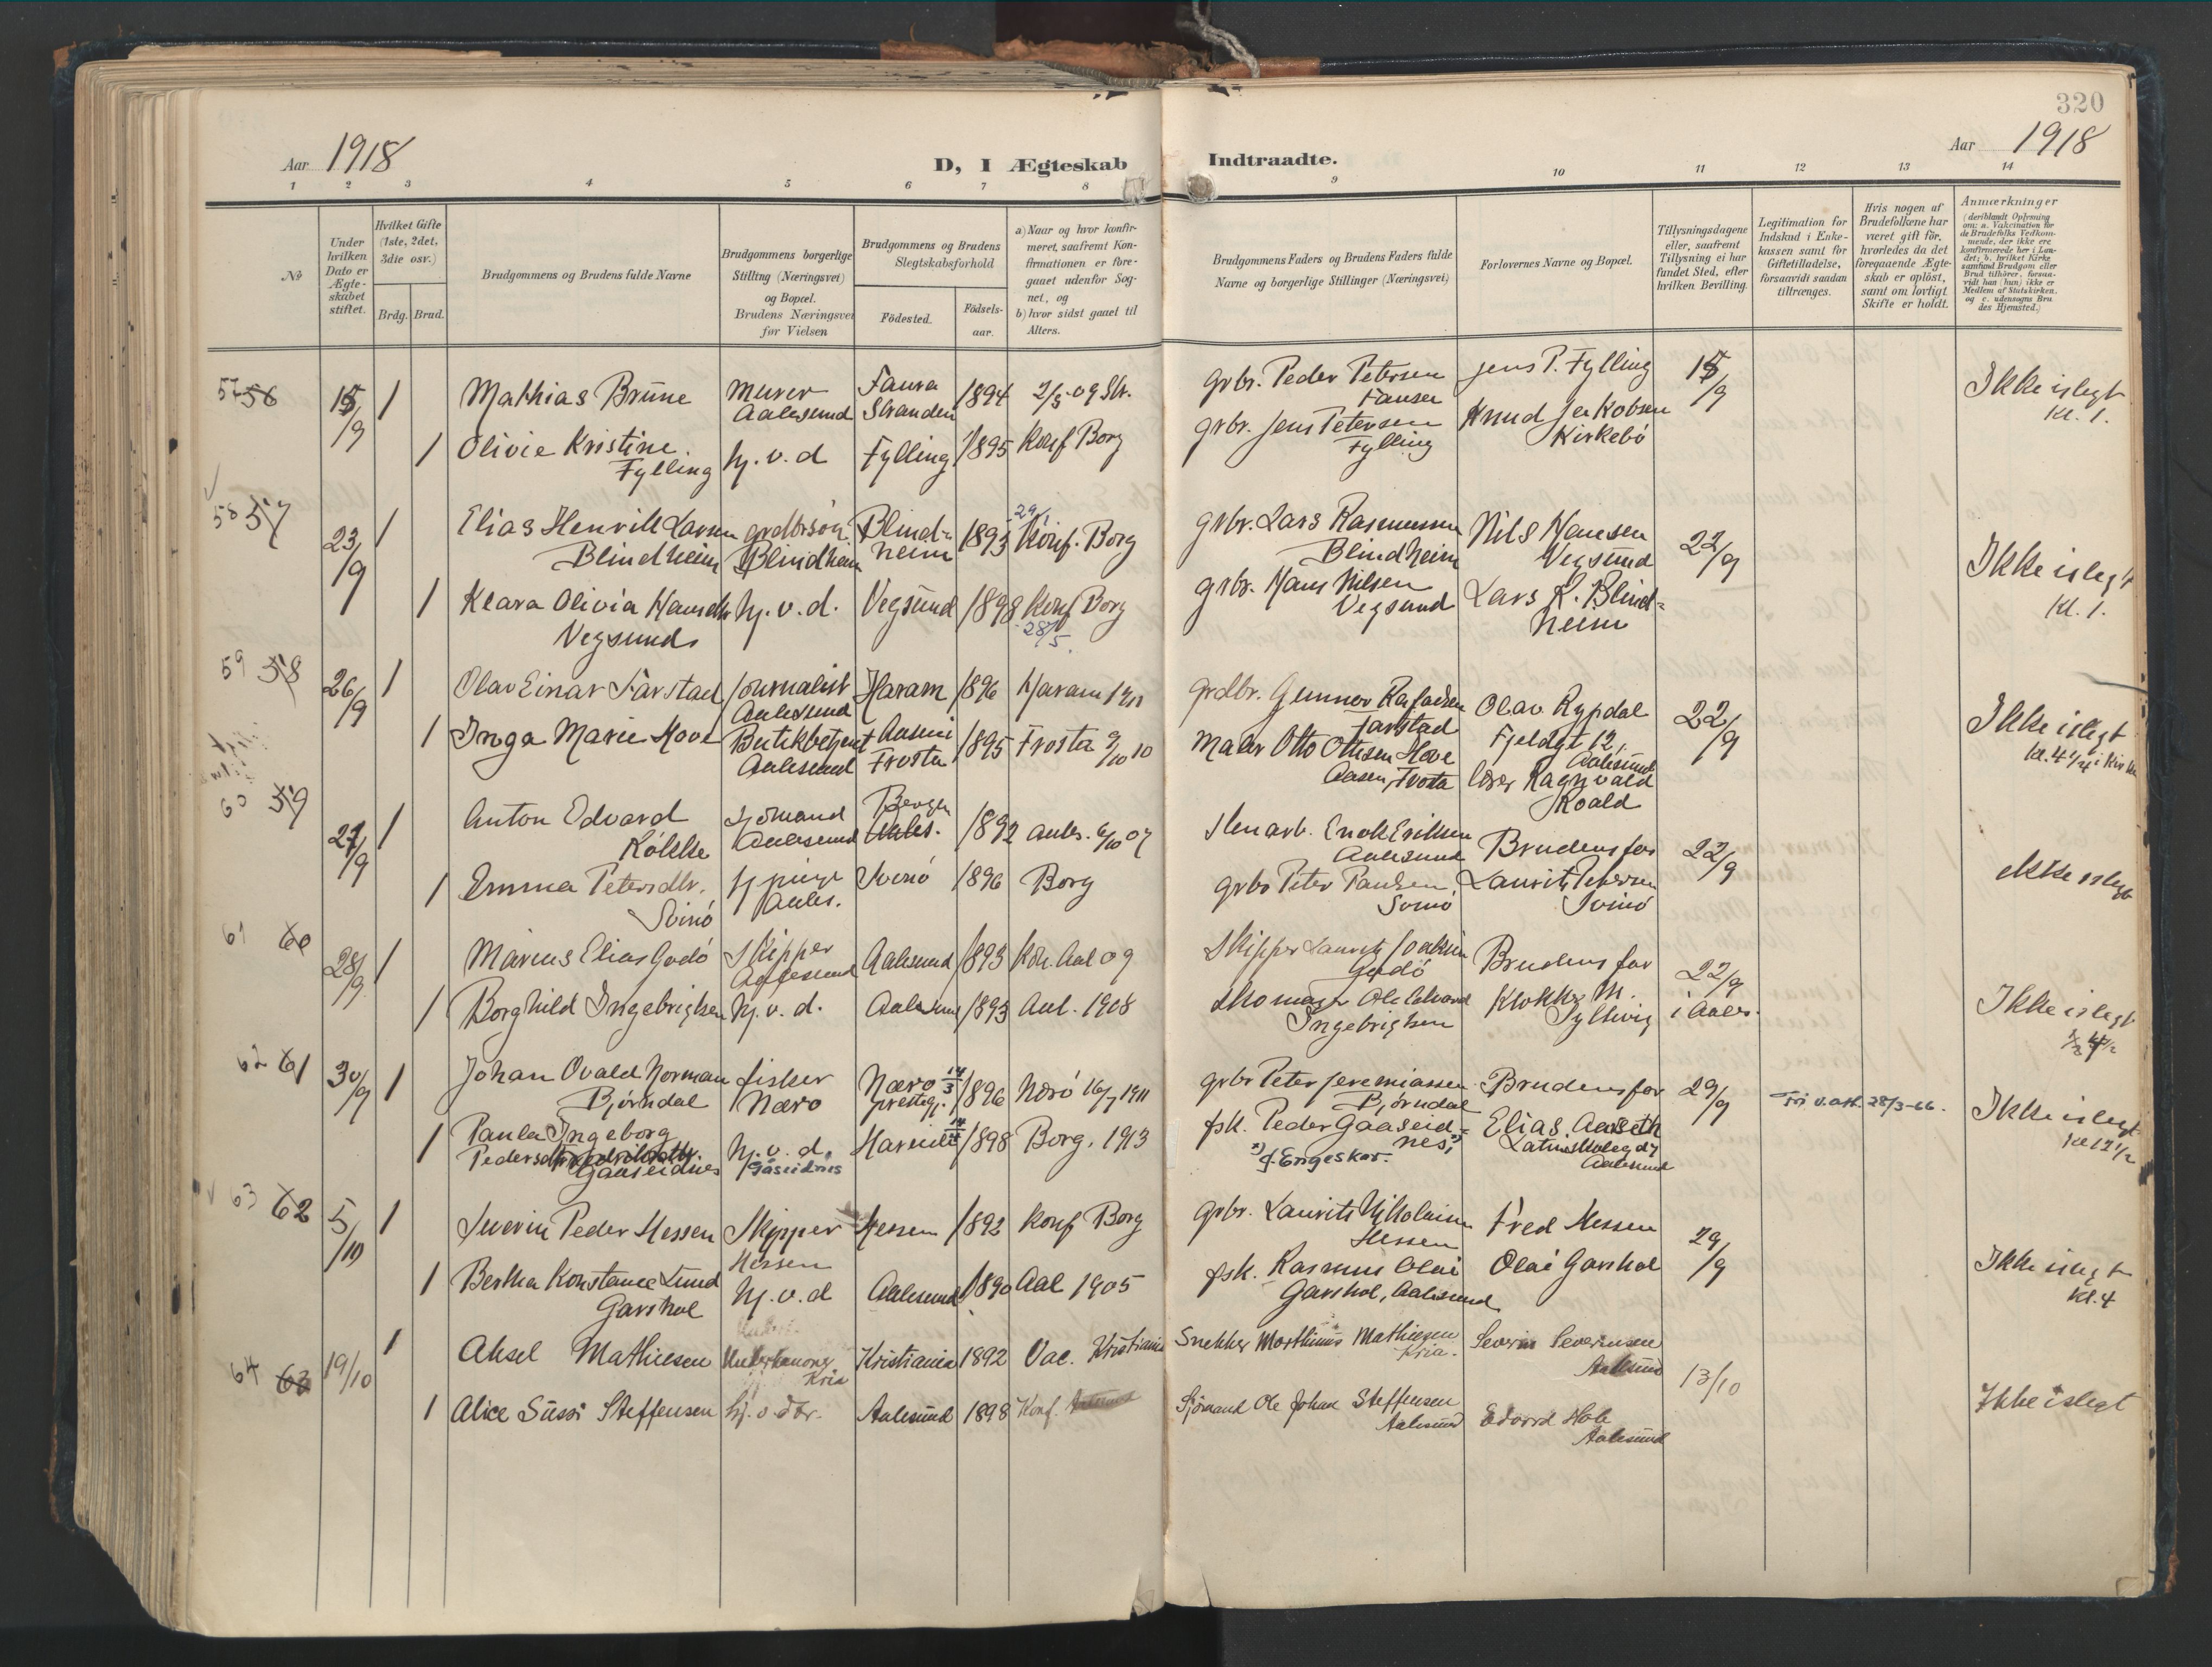 320
Aar 1918
D, I Ægteskab Indtraadte.
Aar 1918
1 2 3 4 5 6 7 8 9 10 11 12 13 14
No
Under hvilken Dato er Ægteskabet stiftet.
Hvilket Gifte (1ste, 2det, 3die osv.)
Brdg. Brud.
Brudgommens og Brudens fulde Navne
Brudgommens borgerlige Stilling (Næringsvei) og Bopæl. Brudens Næringsvei før Vielsen
Brudgommens og Brudens Slegtskabsforhold
Fødested.
Fødselsaar.
a) Naar og hvor konfirmeret, saafremt Konfirmationen er foregaaet udenfor Sognet, og
b) hvor sidst gaaet til Alters.
Brudgommens Faders og Brudens Faders fulde Navne og borgerlige Stillinger (Næringsvei)
Forlovernes Navne og Bopæl.
Tillysningsdagene eller, saafremt Tillysning ei har fundet Sted, efter hvilken Bevilling.
Legitimation for Indskud i Enkekassen samt for Giftetilladelse, forsaavidt saadan tiltrænges.
Hvis nogen af Brudefolkene har været gift før, hvorledes da det foregaaende Ægteskab er opløst, samt om lovligt Skifte er holdt.
Anmærkninger
(deriblandt Oplysning om: a. Vakcination for de Brudefolks Vedkommende, der ikke ere konfirmerede her i Landet; b. hvilket Kirkesamfund Brudgom eller Brud tilhører, forsaavidt han (hun) ikke er Medlem af Statskirken, og c. udensogns Brudes Hjemsted.)
57 56 15/9 1 Mathias Brune murer Aalesund Fausa Stranden 1894 2/5 09 Str. grbr. Peder Petersen Fausen Jens P. Fylling 15/9 Ikke i slegt Kl. 1.
1 Olivie Kristine Fylling hj. v. d Fylling 1895 Konf Borg grbr. Jens Petersen Fylling Knud Jakobsen Kirkebö
58 57 23/9 1 Elias Henrik Larsen Blindheim grdbrsön Blindheim Blindheim 1893 Konf. Borg grbr. Lars Rasmussen Blindheim Nils Hansen Vegsund 22/9 Ikke i slegt Kl. 1.
1 Klara Olivia Hansdtr Vegsund hj. v. d. Vegsund 1898 Konf Borg 28/5. grbr. Hans Nilsen Vegsund Lars R. Blindheim
59 58 26/9 1 Olav Einar Farstad journalist Aalesund Haram 1896 Haram 1911 grdbr. Gunnar Farstad Olav Rypdal Fjeldgt 12, Aalesund 22/9 Ikke i slegt Kl. 4 1/4 i Kirke
1 Inga Marie Hove Butikbetjent Aalesund Frosta 1895 Frosta 9/10 10 maler Otto Ottesen Hove Aasen, Frosta Ragnvald Roald
60 59 27/9 1 Anton Edvard Rökke Sjömand Aalesund Bergen Aales. 1892 Aales. 6/10 07 Stenarb. Enok Eriksen Aalesund Brudens far 22/9 Ikke i slegt
1 Emma Petersdtr. Svinö Aales. Svinö 1896 Borg grbr Peter Paulsen Svinö Laurits Petersen Svinö
61 60 28/9 1 Marius Elias Godö Skipper Aalesund Aalesund 1893 Kon. Aal 09 Skipper Laurits Joakim Godö Brudens far 22/9 i Aales. Ikke i slegt
1 Borghild Ingebrigtsen hj. v. d. Aalesund 1893 Aal. 1908 Skomager Ole Edvard Ingebrigtsen Klokker M. Sylling
62 61 30/9 1 Johan Ovald Norman Björndal fisker Nærö Nærö prestegj. 14/3 1896 Nærö 16/7 1911 grbr Peter Jeremiassen Björndal Brudens far 29/9 Fri v. att. 28/3-66. Ikke i slegt Kl 12 1/2
1 Paula Ingeborg Pedersdtr. Gaaseidnes hj. v. d. Gåseidnes 1898 Borg. 1913 fsk. Peder Gaaseidnes, x) f. Engeskar. Elias Aaseth Latinskolegd 7 Aalesund
63 62 5/10 1 Severin Peder Hessen Skipper Hessen Hessen 1892 Konf Borg grbr. Laurits Nikolaisen Hessen Fred Hessen 29/9 Ikke i slegt Kl. 4
1 Bertha Konstance Lund Garshol hj. v. d Aalesund 1890 Aal 1905 fsk. Rasmus Olai Garshol, Aalesund Olai Garshol
64 63 19/10 1 Aksel Mathiesen Kria Kristiania 1892 Vac. Kristiania Snekker Morthinus Mathiesen Kria. Severin Severinsen Aalesund 13/10 Ikke i slegt
1 Alice Sussi Steffensen hj. v. dtr. Aalesund 1898 Konf. Sjömand Ole Johan Steffensen Aalesund Edvard Hole Aalesund